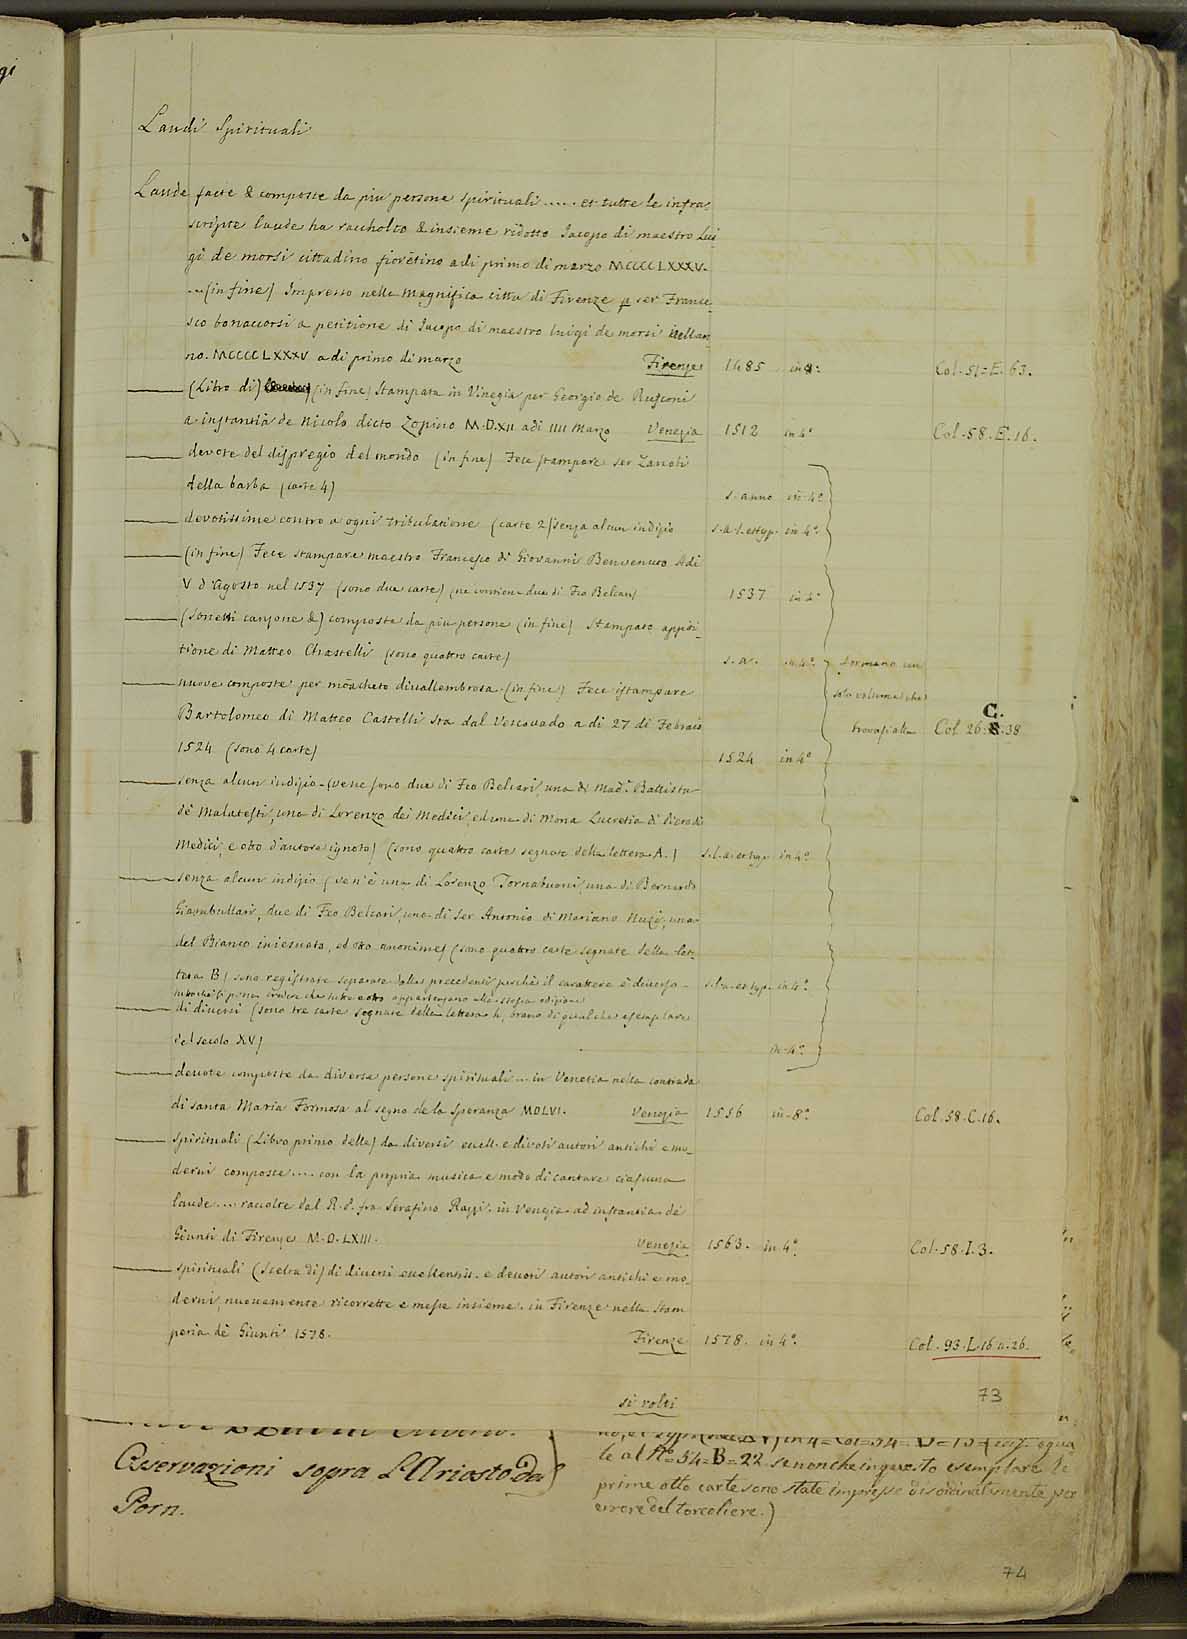 gi
Laudi Spirituali
Laude facte & composte da piu persone spirituali ..... et tutte le infra-
scripte laude ha raccholto & insieme ridotto Jacopo di maestro Lui
gi de morsi cittadino fiorẽtino adi primo di marzo MCCCCLXXXV.
...(in fine) Impresso nella magnifica citta di Firenze p ser France-
sco bonaccorsi a petitione di Jacopo di maestro luigi de morsi nellan
no. MCCCCLXXXV a di primo di marzo Firenze 1485 in 4º Col. 51. E. 63.
—— (Libro di) (in fine) Stampata in Vinegia per Georgio de Rusconi
a instantia de Nicolo dicto Zopino M.D.XII adi IIII Marzo Venezia 1512 in 4º Col. 58. E. 16.
—— devote del dispregio del mondo (in fine) Fece stampare ser Zanobi
della barba (carte 4) s. anno in 4º
—— devotissime contro a ogni tribulatione (carte 2) senza alcun indizio s. a. l. et typ. in 4º
—— (in fine) Fece stampare maestro Francesco di Giovanni Benvenuto Adi
V d'Agosto nel 1537 (sono due carte) (ne contiene due di Feo Belcari) 1537 in 4º
—— (Sonetti canzone &) composta da piu persone (in fine) Stampato appiti-
tione di Matteo Chastelli (sono quattro carte) s. a. in 4º formano un
—— nuove composte per mõacheto di vallembrosa (in fine) Fece istampare solo volume che
Bartolomeo di Matteo Castelli sta dal Vescovado a di 27 di Febraio trovasi alla Col. 26. C. 38
1524 (sono 4 carte) 1524 in 4º
—— senza alcun indizio (ve ne sono due di Feo Belcari, una di Mad.ª Battista
de Malatesti, una di Lorenzo dei Medici, ed una di Mona Lucretia di Piero di
Medici, e otto d'autore ignoto) (sono quattro carte segnate della lettera A.) s. l. a. et typ. in 4º
—— senza alcun indizio (ve n'è una di Lorenzo Tornabuoni, una di Bernardo
Giambullari, due di Feo Belcari, una di Ser Antonio di Mariano Muzi, una
del Bianco iniesuato, ed otto anonime) (sono quattro carte segnate della let-
tera B) sono registrate separate dalle precedenti perchè il carattere è diverso s. l. a. et typ. in 4º
tuttochè si possa credere che tutte e otto appartengano alla stessa edizione
—— di diversi (sono tre carte segnate della lettera h, brano di qualche esemplare
del secolo XV) in 4º
—— devote composte da diverse persone spirituali ... in Venetia nella contrada
di santa Maria Formosa al segno de la Speranza MDLVI. Venezia 1556 in 8º Col. 58. C. 16.
—— Spirituali (Libro primo delle) da diversi eccell. e divoti autori antichi e mo-
derni composte .... con la propria musica e modo di cantare ciascuna
laude .... raccolte dal R. P. fra Serafino Razzi. in Venezia ad instantia de'
Giunti di Firenze M.D.LXIII. Venezia 1563. in 4º Col. 58. I. 3.
—— Spirituali (Scelta di) di diversi eccellentiss. e devoti autori antichi e mo-
derni, nuovamente ricorrette e messe insieme. in Firenze nella Stam
peria de Giunti 1578. Firenze 1578. in 4º. Col. 93. L. 16 a. 26.
si volti
73
Osservazioni sopra L'Ariosto Da
Porn.
te al Nº = 54 = B = 22. se non che in questo esemplare le
prime otto carte sono state impresse disordinatamente per
errore del torcoliere.)
74